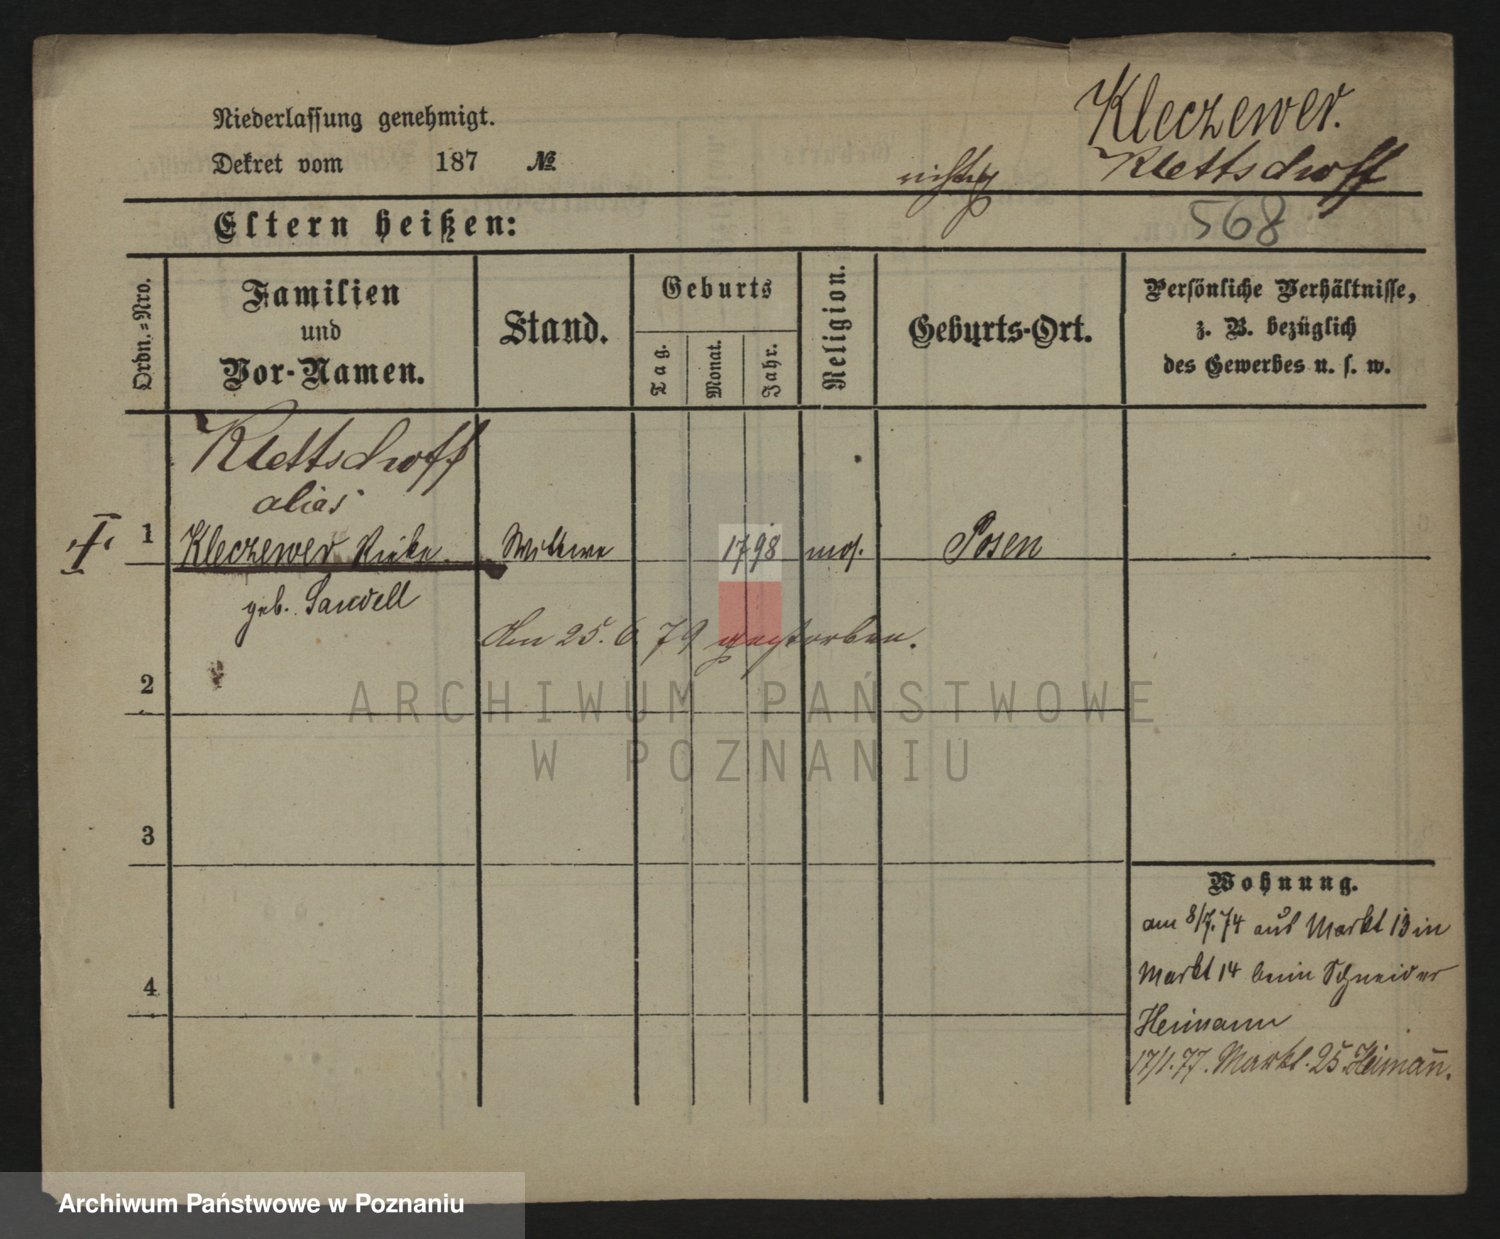 Niederlassung genehmigt.
Dekret vom 187 №
Kleczewer.
richtig Klettschoff
598
Eltern heißen:
Ordn.-Nro.
Familien und Vor-Namen.
Stand.
Geburts
Tag.
Monat.
Jahr.
Religion.
Geburts-Ort.
Persönliche Verhältnisse,
z. B. bezüglich
des Gewerbes u. s. w.
Klettschoff
alias
1 Kleczewer Rieke Wittwe 1798 mos. Posen
geb.
Am 25. 6 79 gestorben.
2
3
4
Wohnung.
am 8/7. 74 aus Markt 13 in
Markt 14 beim Schneider
Heimann
17/1. 77. Markt. 25 Heimañ.
ARCHIWUM PAŃSTWOWE
W POZNANIU
Archiwum Państwowe w Poznaniu